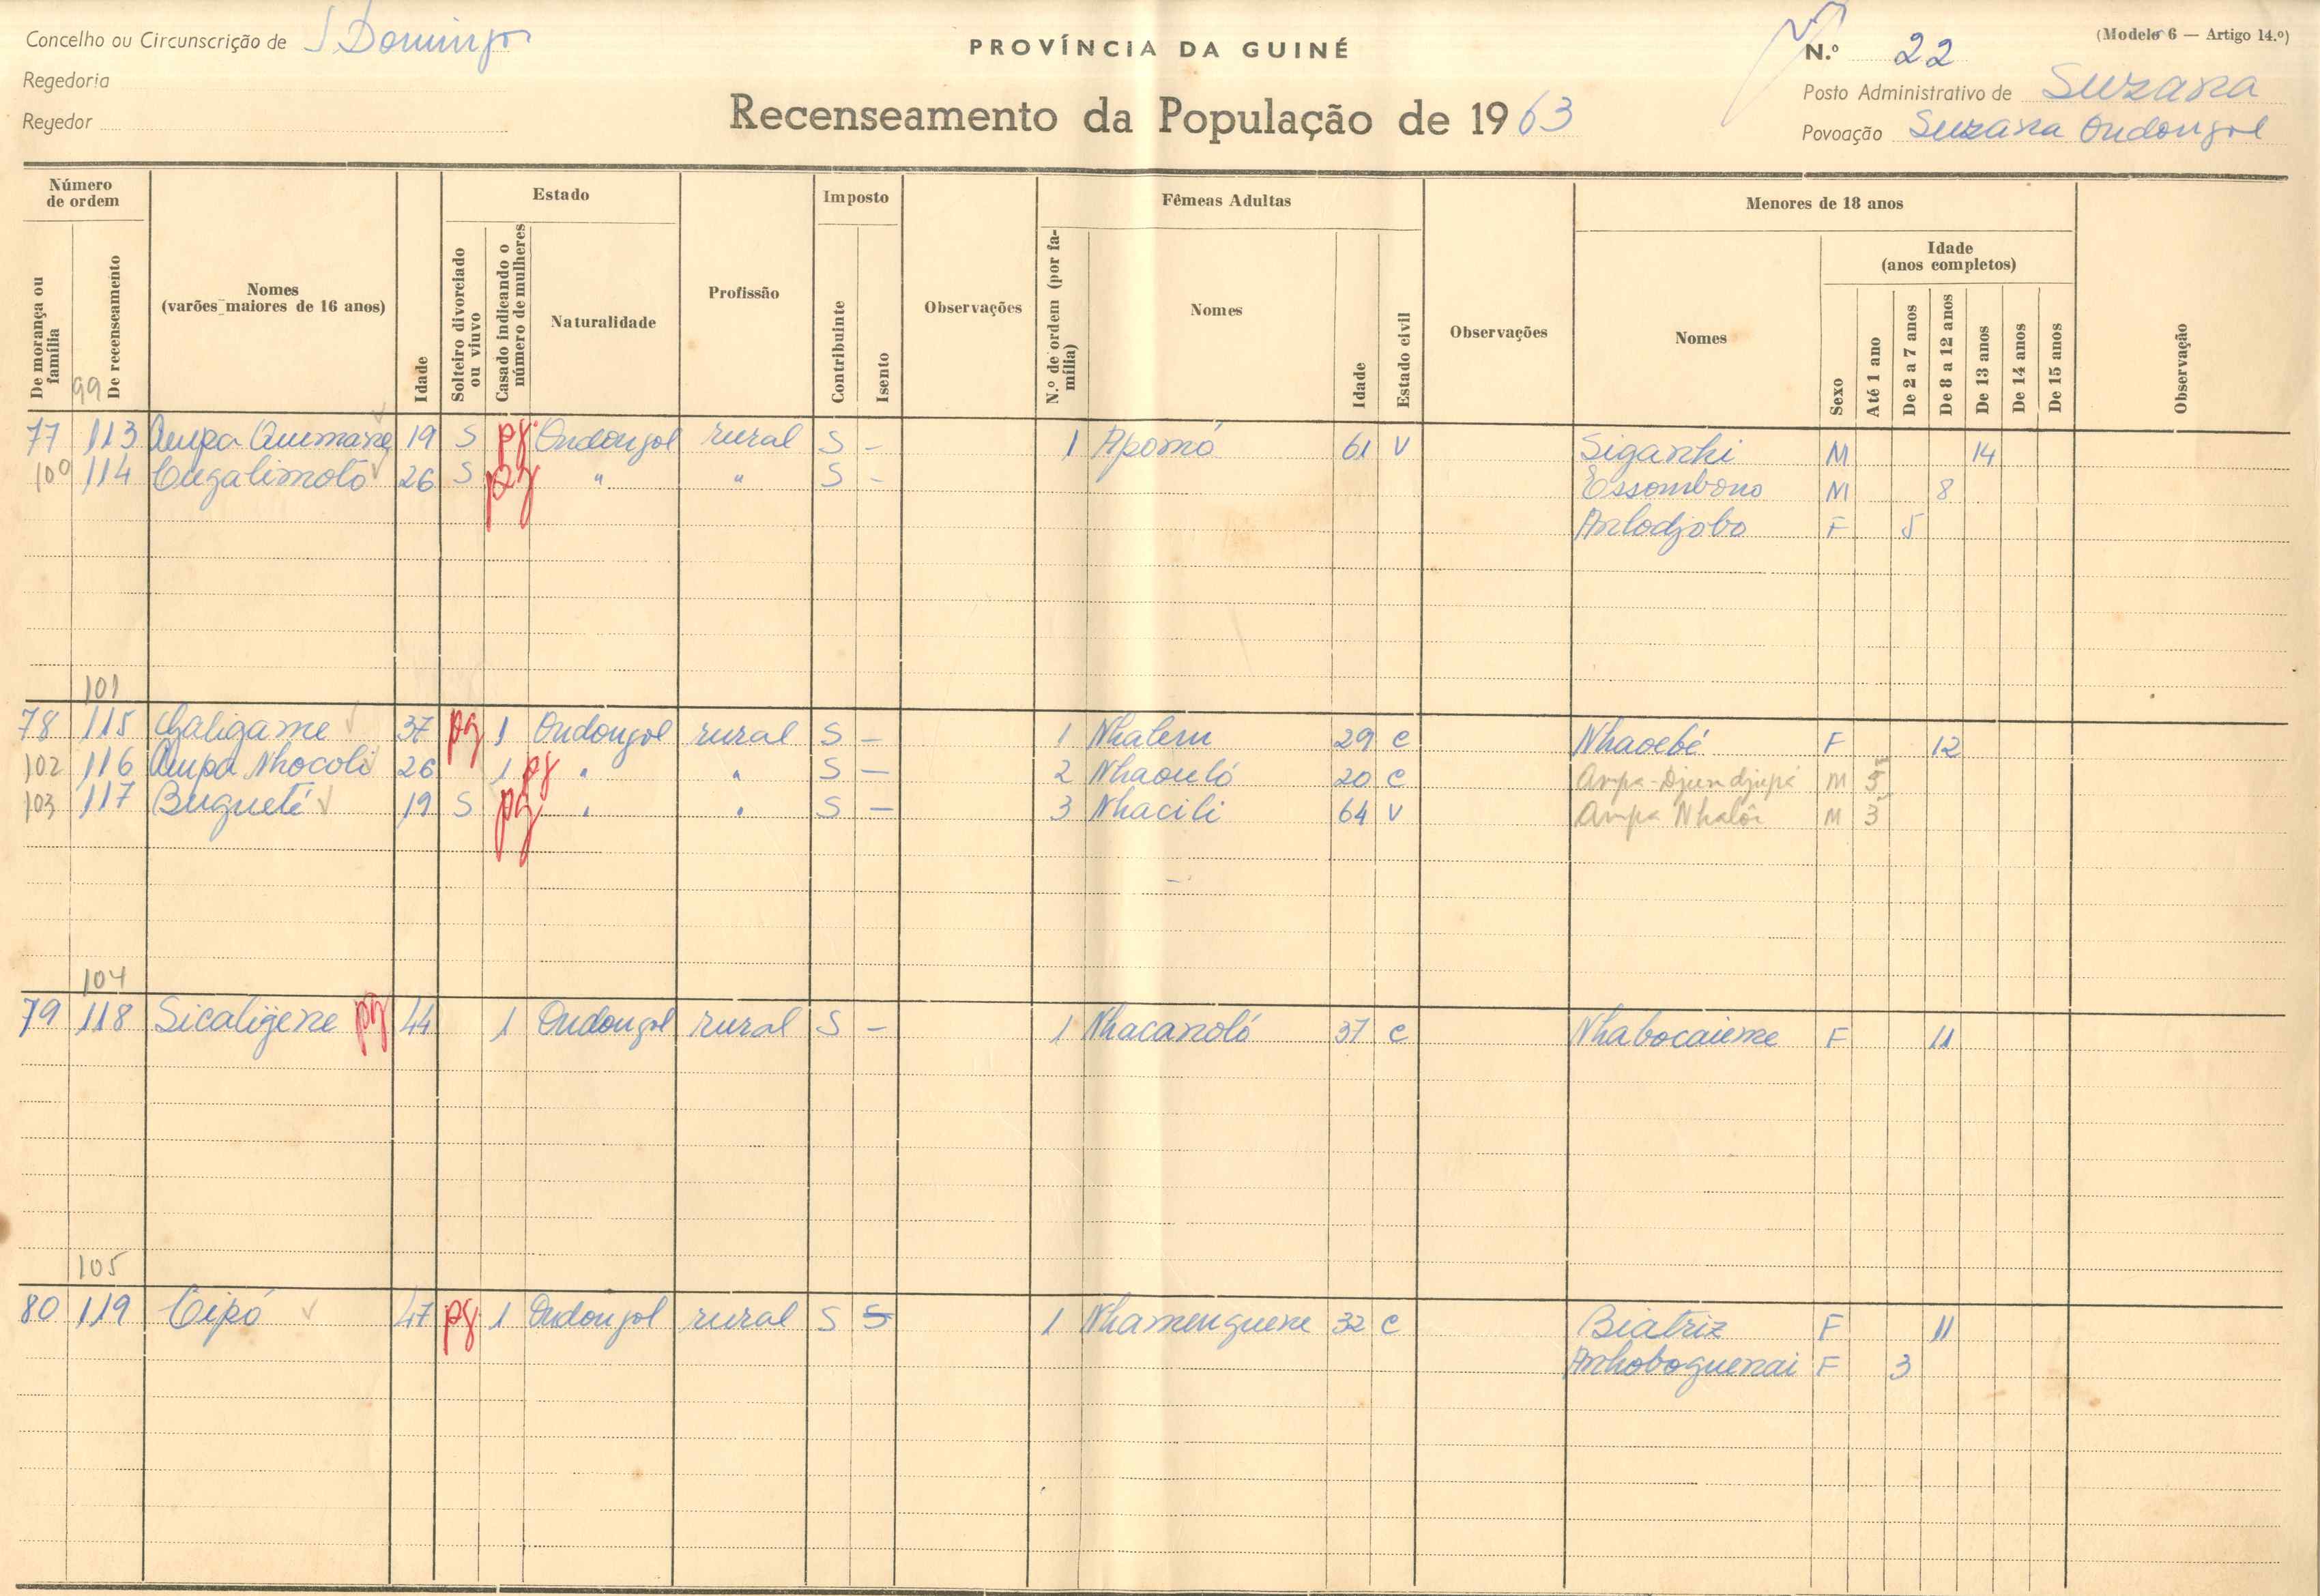 Concelho ou Circunscrição de S Domingos
PROVÍNCIA DA GUINÉ
N.º 22
(Modelo 6 — Artigo 14.º)
Regedoria
Posto Administrativo de Suzana
Regedor
Recenseamento da População de 1963
Povoação Suzana Ondongol
Número de ordem
Estado
Imposto
Fêmeas Adultas
Menores de 18 anos
De morança ou família
De recenseamento
Nomes (varões maiores de 16 anos)
Idade
Solteiro divorciado ou viuvo
Casado indicando o número de mulheres
Naturalidade
Profissão
Contribuinte
Isento
Observações
N.º de ordem (por família)
Nomes
Idade
Estado civil
Observações
Nomes
Sexo
Idade (anos completos)
Até 1 ano
De 2 a 7 anos
De 8 a 12 anos
De 13 anos
De 14 anos
De 15 anos
Observação
99
77 113 Ampa Aumane 19 S pg Ondongol rural S - 1 Apomó 61 V Siganhi M 14
100 114 Cugalimotó 26 S pg " " S - Essombono M 8
Anlodjobo F 5
101
78 115 Galigame 37 pg 1 Ondongol rural S - 1 Nhalem 29 C Nhaoebé F 12
102 116 Ampa Nhocoli 26 1 pg " " S - 2 Nhaouló 20 C Ampa-Djundjupa M 5
103 117 Bugueté 19 S pg " " S - 3 Nhacili 64 V Ampa Nhalôi M 3
104
79 118 Sicaligene pg 44 1 Ondongol rural S - 1 Nhacanoló 37 C Nhabocaieme F 11
105
80 119 Cipó 47 pg 1 Ondongol rural S S 1 Nhamenguene 32 C Biatriz F 11
Anhoboguenai F 3